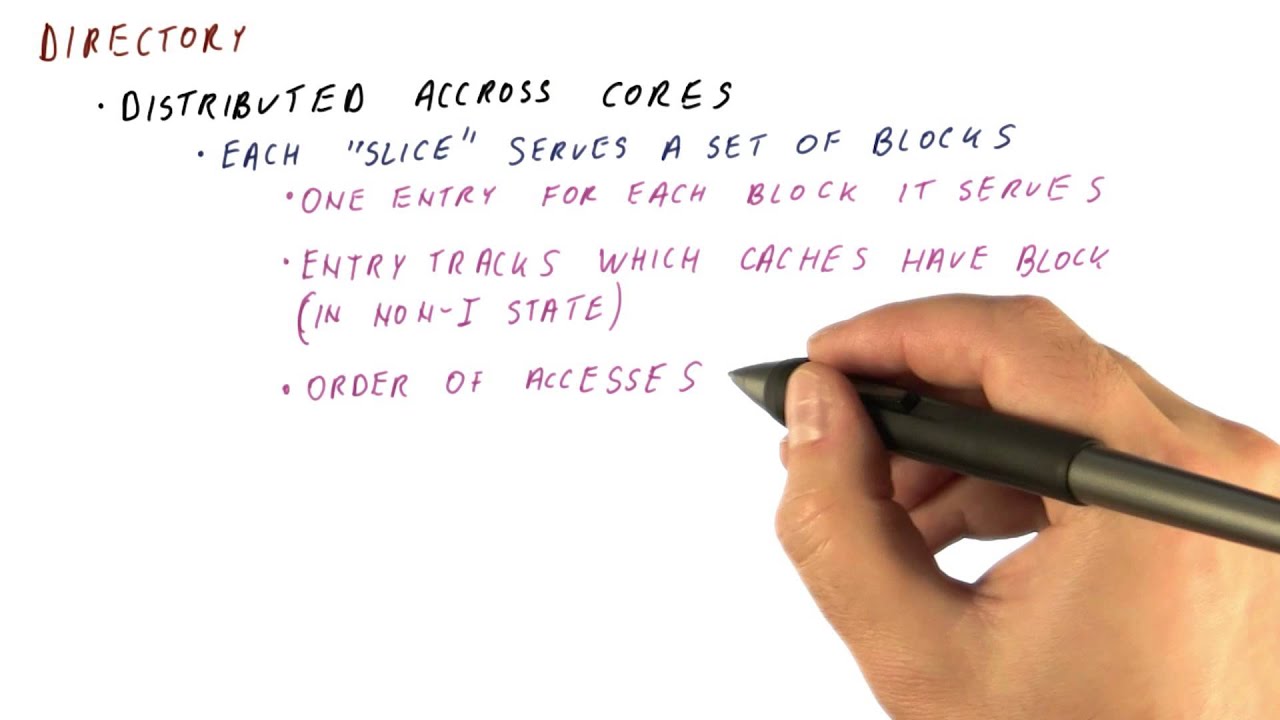 DIRECTORY
• DISTRIBUTED ACCROSS CORES
• EACH "SLICE" SERVES A SET OF BLOCKS
• ONE ENTRY FOR EACH BLOCK IT SERVES
• ENTRY TRACKS WHICH CACHES HAVE BLOCK
(IN NON-I STATE)
• ORDER OF ACCESSES